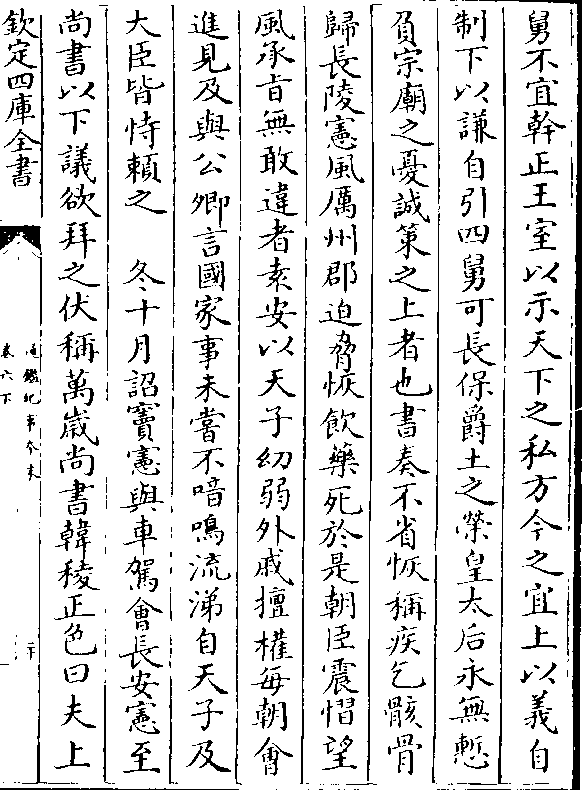 舅不宜幹正王室以示天下之私方今之宜上以義自
制下以謙自引四舅可長保爵土之榮皇太后永無慙
負宗廟之憂誠策之上者也書奏不省恢稱疾乞骸骨
歸長陵憲風厲州郡迫脅恢飲藥死於是朝臣震慴望
風承旨無敢違者袁安以天子幼弱外戚擅權每朝會
進見及與公卿言國家事未嘗不喑嗚流涕自天子及
大臣皆恃賴之　冬十月詔竇憲與車駕會長安憲至
尚書以下議欲拜之伏稱萬歲尚書韓稜正色曰夫上
欽定四庫全書
通鑑紀事本末
卷六下